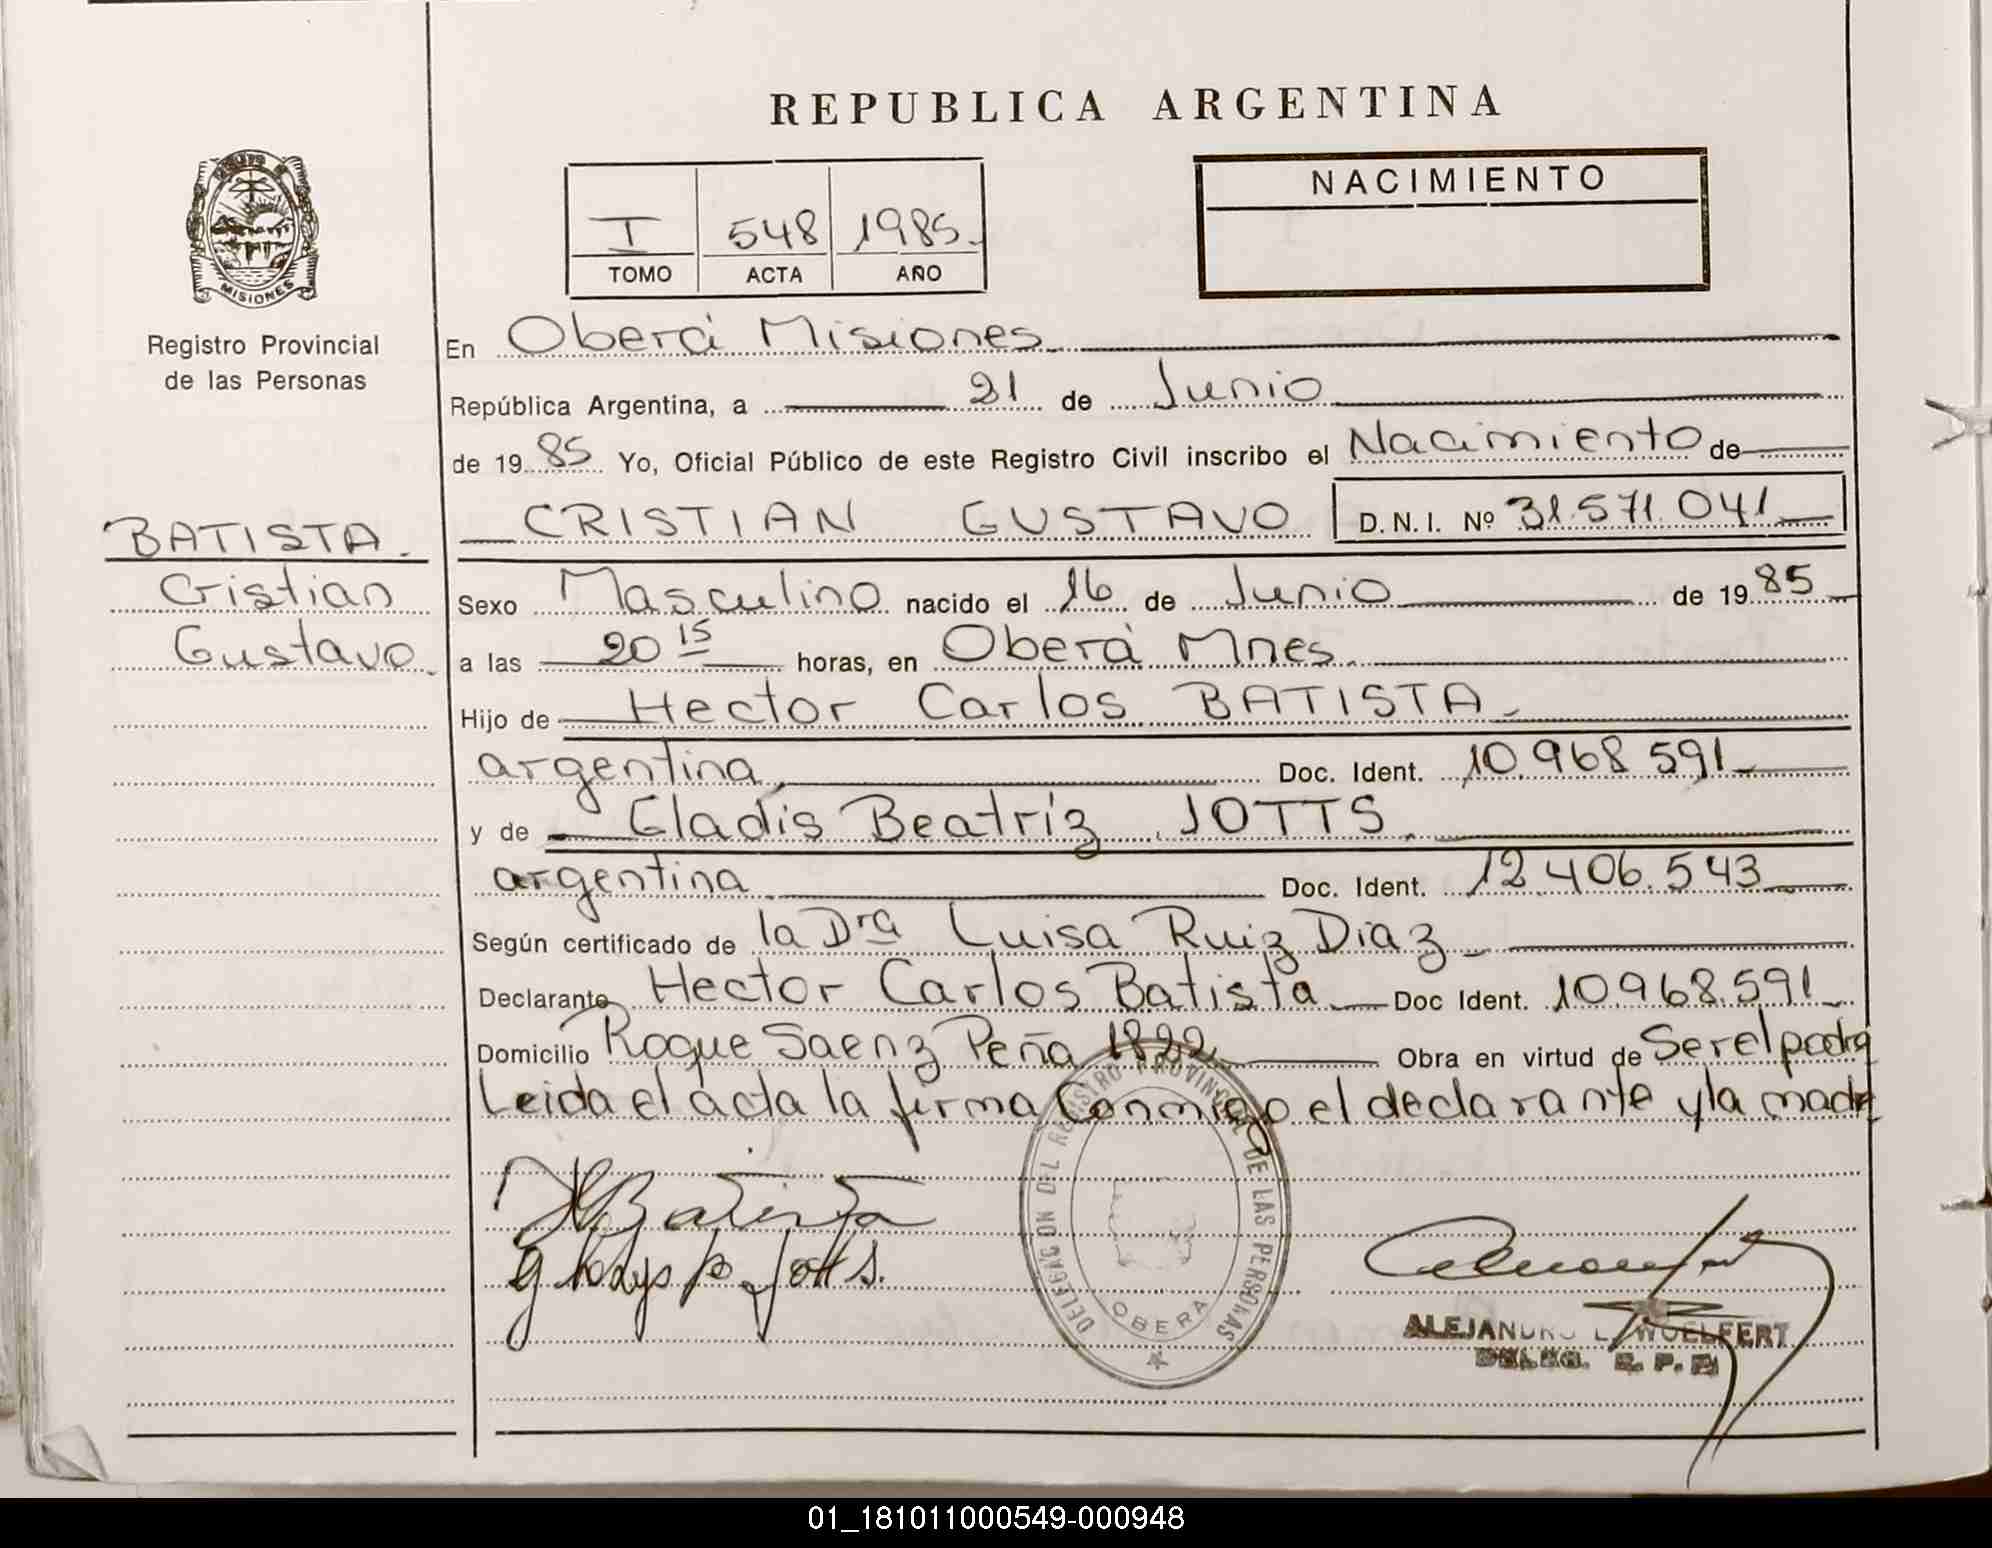 REPUBLICA ARGENTINA
NACIMIENTO
I 548 1985.
TOMO ACTA AÑO
MISIONES
Registro Provincial
de las Personas
En Oberá Misiones
República Argentina, a 21 de Junio
de 1985 Yo, Oficial Público de este Registro Civil inscribo el Nacimiento de
BATISTA.
Cristian
Gustavo.
CRISTIAN GUSTAVO D.N.I. Nº 31.571.041
Sexo Masculino nacido el 16 de Junio de 1985
a las 20 15 horas, en Oberá Mnes.
Hijo de Hector Carlos BATISTA
argentina Doc. Ident. 10.968.591
y de Gladis Beatríz JOTTS
argentina Doc. Ident. 12.406.543
Según certificado de la Dra Luisa Ruiz Diaz
Declarante Hector Carlos Batista Doc Ident. 10.968.591
Domicilio Roque Saenz Peña 1822 Obra en virtud de Ser el padre
Leida el acta la firma Conmigo el declarante y la madre
HBatista
Gladys B. Jotts.
DELEGACION DEL REGISTRO PROVINCIAL DE LAS PERSONAS
OBERA
ALEJANDRO L. WOELFERT
DELEG. R. P. P.
01_181011000549-000948